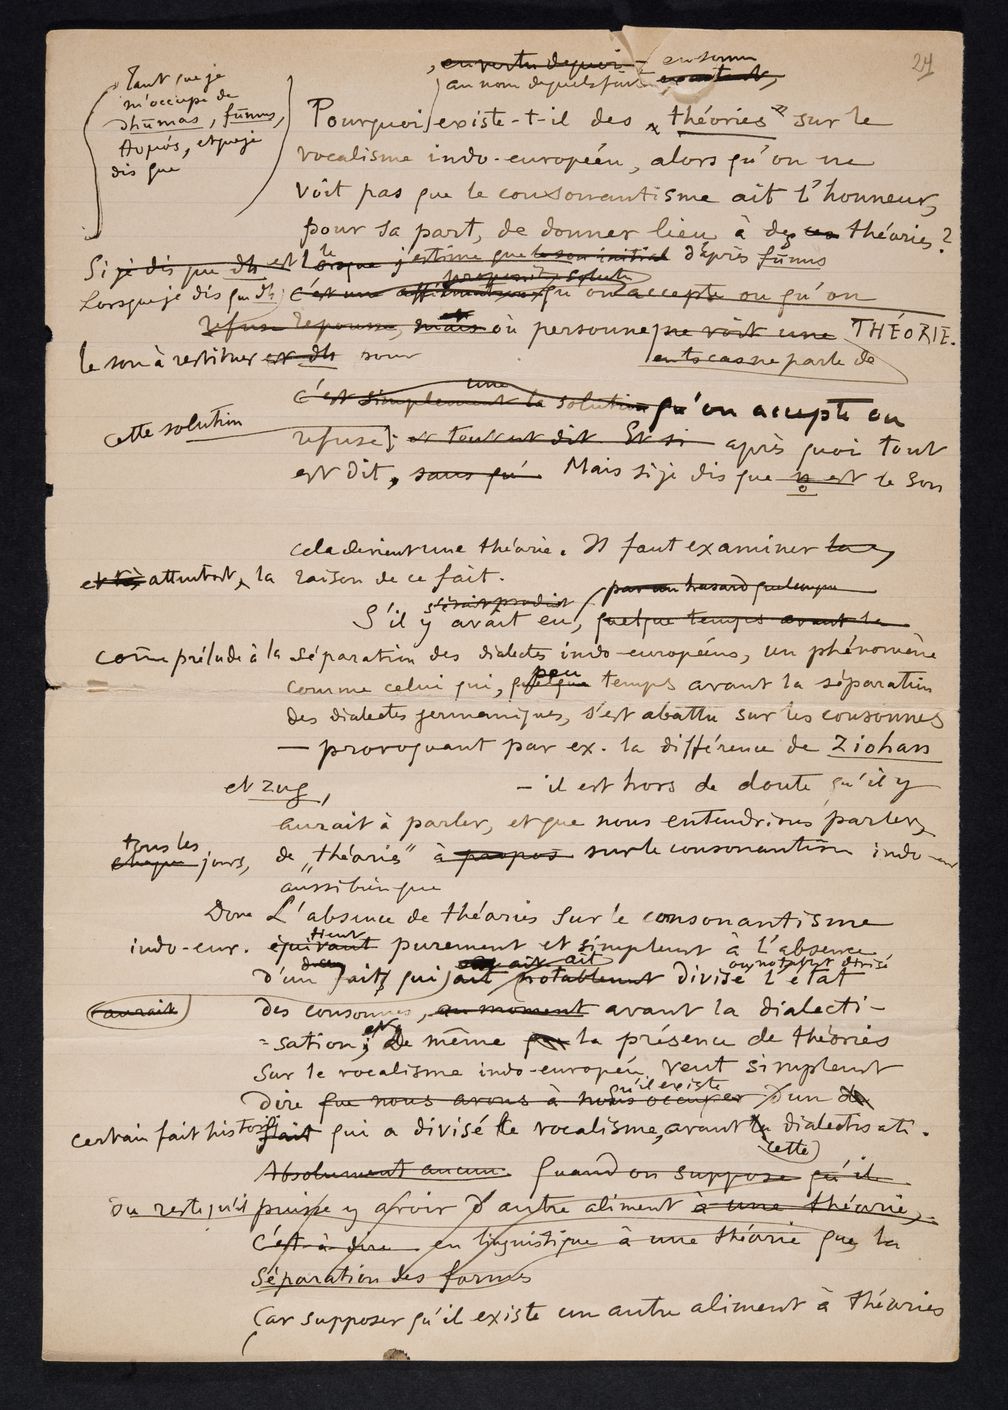 24
, en vertu de quoi – en somme
au nom de quels faits existent,
Tant que je
m'occupe de
dhūmas, fūmus,
θυμός, et que je
dis que
Pourquoi existe-t-il des „théories" sur le
vocalisme indo-européen, alors qu'on ne
voit pas que le consonantisme ait l'honneur,
pour sa part, de donner lieu à des ces théories?
Si je dis que dh est le
Lorsque j'estime que le son initial d'après fūmus
proposition, solution
Lorsque je dis que dh c'est une affirmation qu'on accepte ou qu'on
refuse repousse, mais et où personne ne voit une THÉORIE.
le son à restituer est dh pour
en ts cas ne parle de
c'est simplement la une solution qu'on accepte ou
cette solution
refuse; et tout est dit. Et si après quoi tout
est dit, sans qu' Mais si je dis que n̥ est le son
cela devient une théorie. Il faut examiner la,
et très attentivt, la raison de ce fait.
s'était produit par un hasard quelconque
S'il y avait eu, quelque temps avant la
come prélude à la séparation des dialectes indo-européens, un phénomène
comme celui qui, quelque peu temps avant la séparation
des dialectes germaniques, s'est abattu sur les consonnes
— provoquant par ex. la différence de Ziohan
et zug, – il est hors de doute qu'il y
aurait à parler, et que nous entendrions parler,
tous les
chaque jours, de „théories" à propos sur le consonantisme indo-eur
aussi bien que
Donc L'absence de théories sur le consonantisme
indo-eur. équivaut tient purement et simplemt à l'absence
d'un fait qui ait notablement divisé l'état
ou notabt divisé
(aurait) des consonnes, au moment avant la dialecti-
=sation; et de même la présence de théories
sur le vocalisme indo-européen, veut simplemt
dire que nous avons à nous occuper qu'il existe d'un de
certain fait historiq fait qui a divisé le vocalisme, avant la cette dialectisati.
Absolument aucun. Quand on suppose qu'il
du reste qu'il puisse y avoir d'autre aliment à une théorie,
C'est-à-dire en linguistique à une théorie que la
séparation des formes
Car supposer qu'il existe un autre aliment à théories